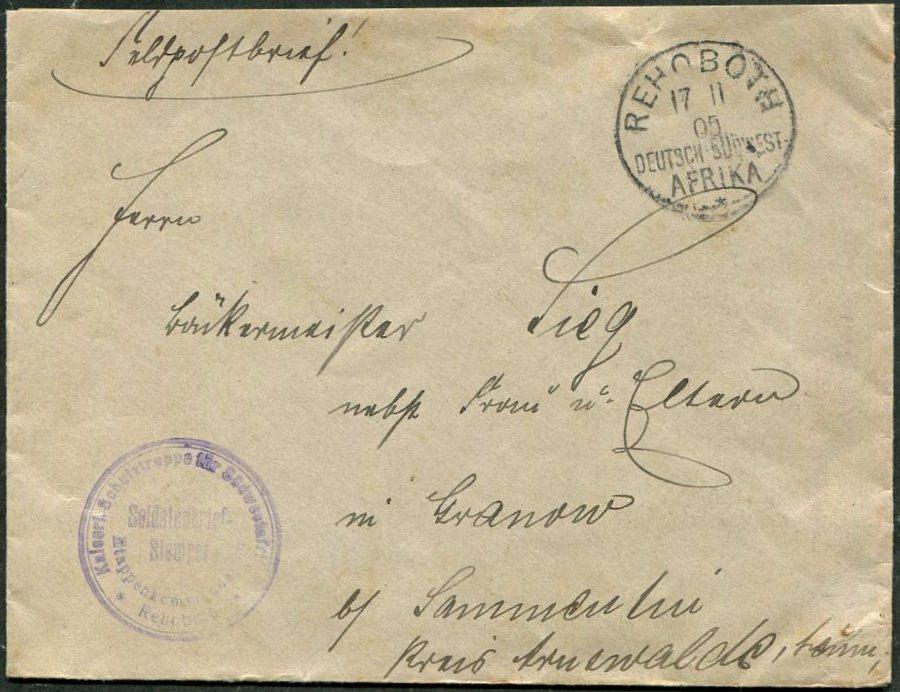 Feldpostbrief!
REHOBOTH
17 11
05
DEUTSCH-SÜDWEST-
AFRIKA
Herrn
Bäckermeister Sieg
nebst Frau u. Eltern
in Granow
b/ Sammenthin
Kreis Arnswalde,
Kaiserl. Schutztruppe für Südwestafr.
Soldatenbrief-
Stempel
Rehoboth